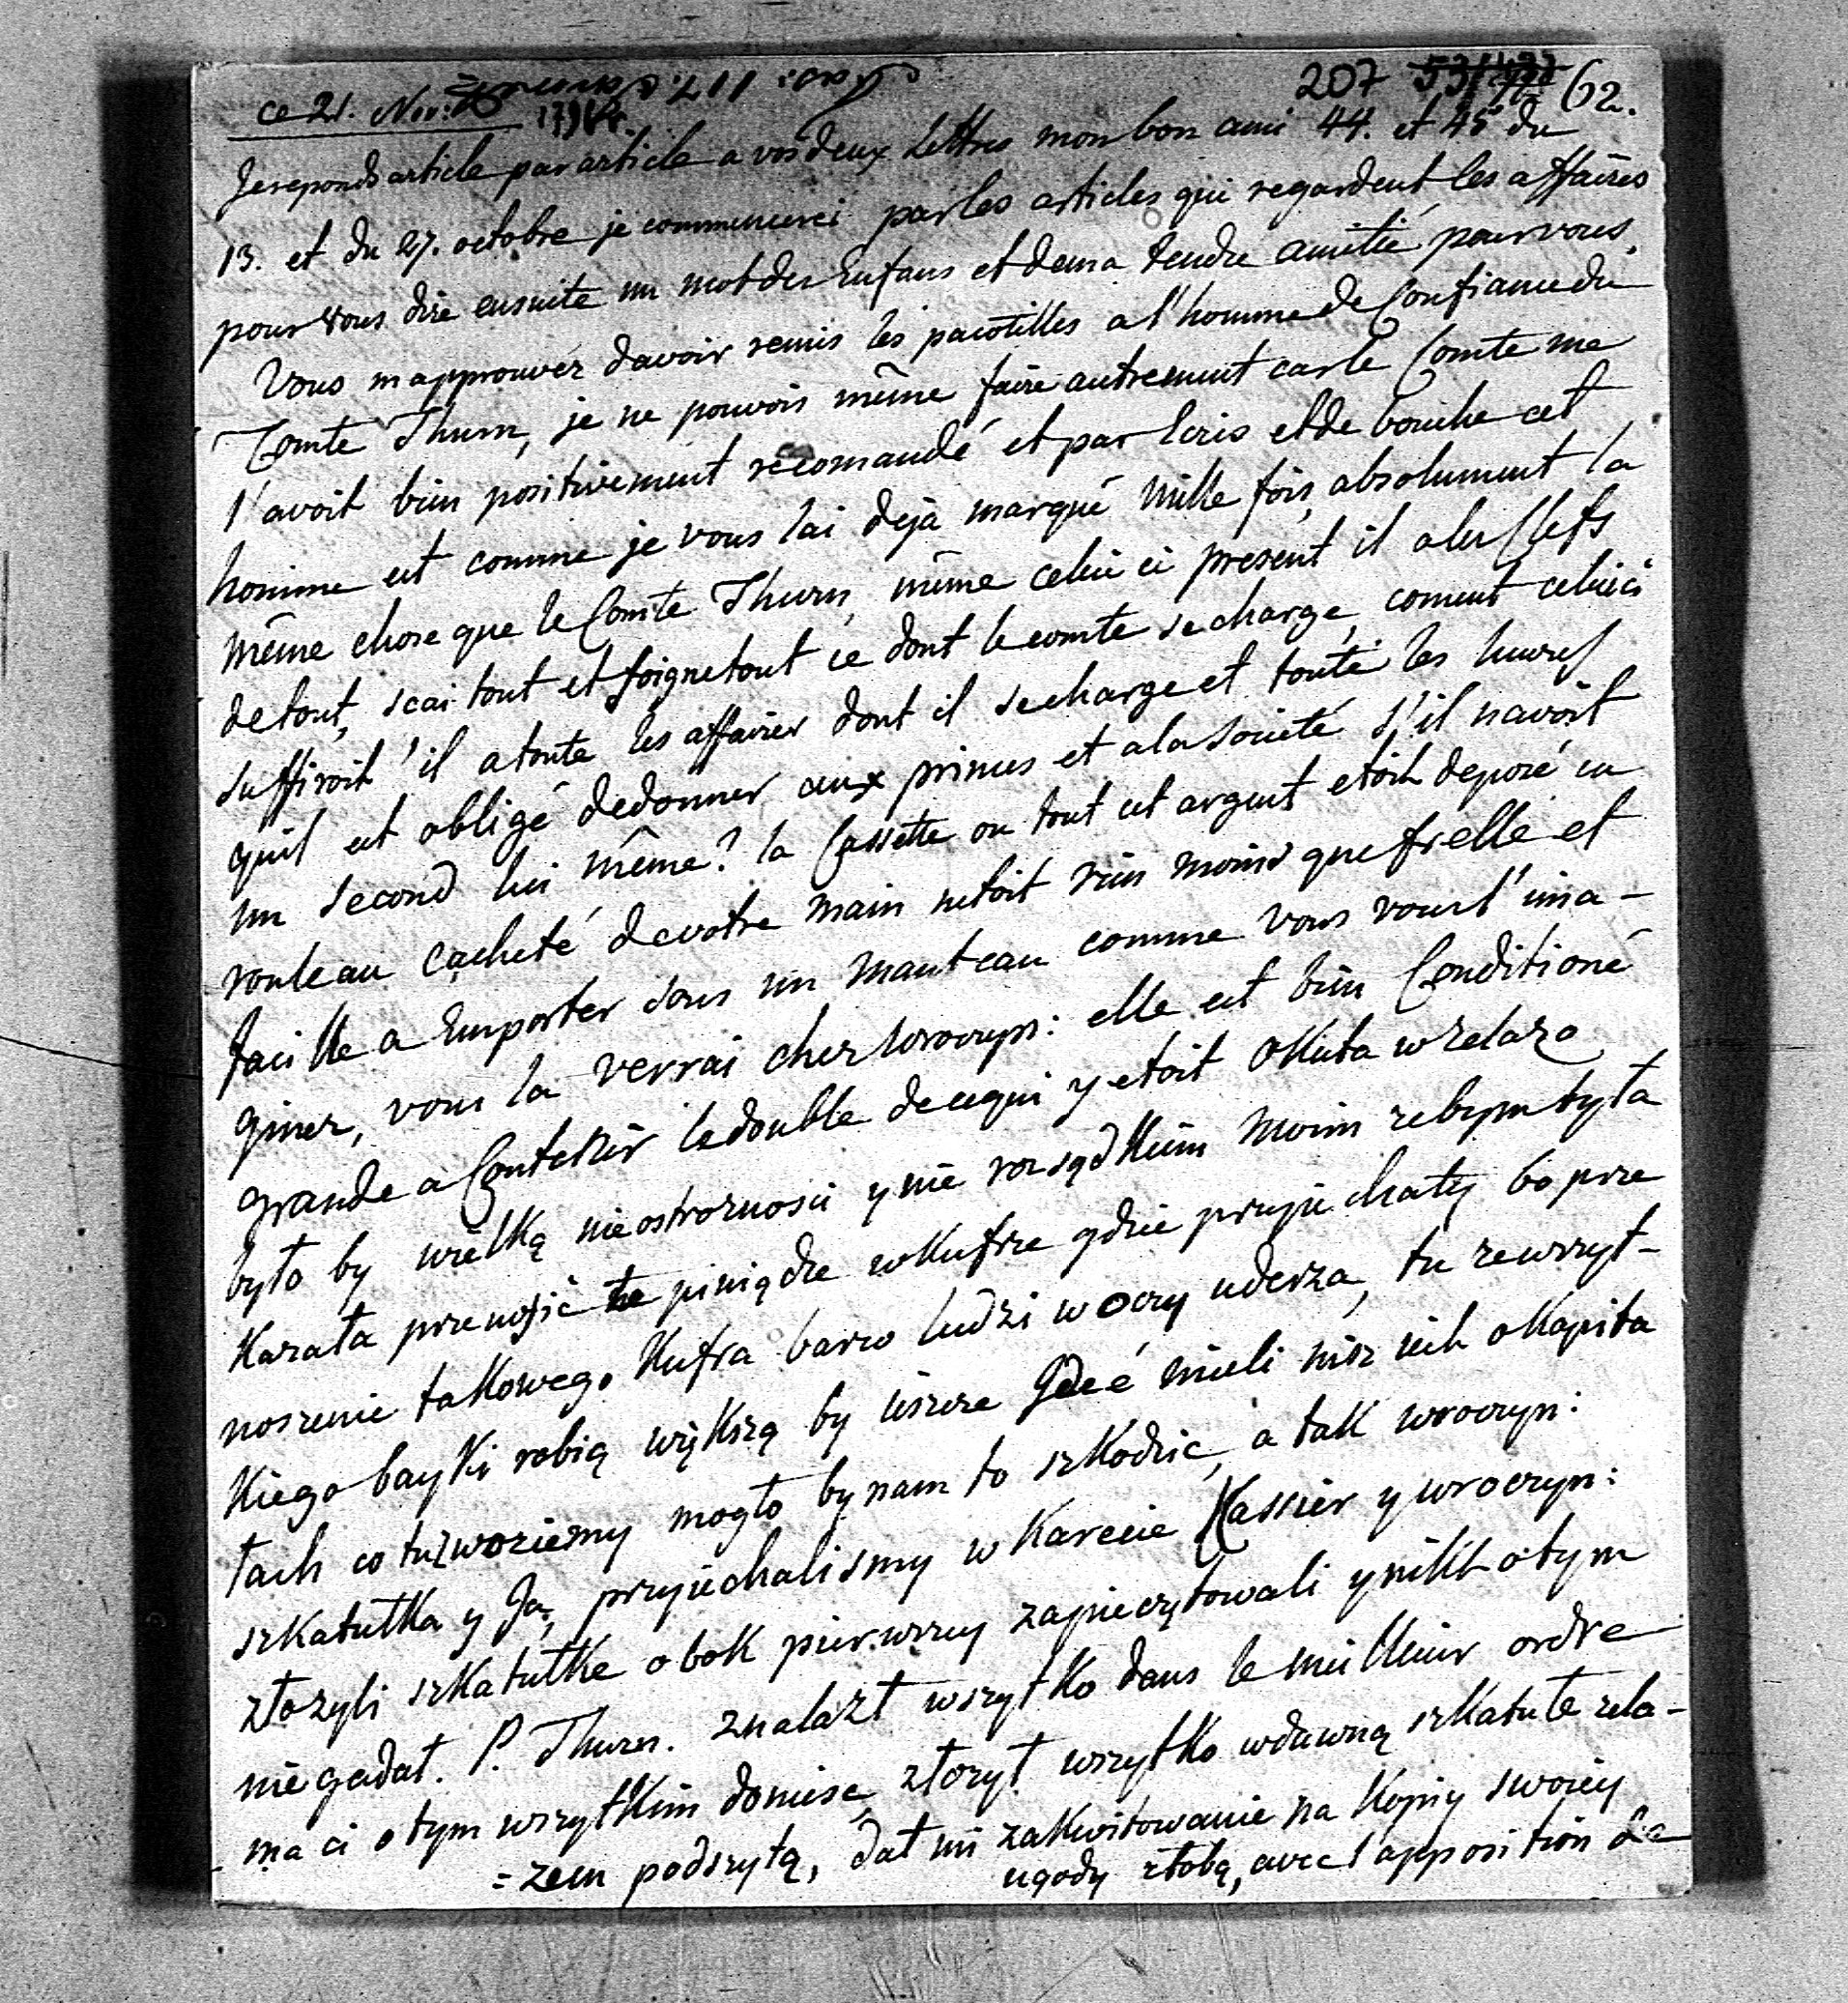 207 62.
ce 21. Nov:
Je reponds article par article a vos deux Lettres mon bon ami 44. et 45 du
13. et du 27. octobre je commencerei par les articles qui regardent les affaires
pour vous dire ensuite un mot des Enfans et de ma tendre amitié pour vous.
Vous m approuvez davoir remis les pacotilles a l'homme de Confiance du
Comte Thurn, je ne pouvois même faire autrement car le Comte me
l'avoit bien positivement recomandé et par Ecris et de bouche cet
homme est comme je vous lai deja marqué mille fois, absolument la
même chose que le Comte Thurn, même celui ci present il a les Clefs
de tout, scai tout et soigne tout ce dont le comte se charge, coment celuici
suffiroit 'il a toute les affaires dont il se charge et toute les heures
quil est obligé de donner aux primes et a la Societé s'il navoit
un second lui même? la Cassette ou tout cet argent etoit deposé en
rouleau cacheté de votre main netoit rien moins que frelle et
facille a Emporter sous un manteau comme vous vous l'ima-
giner, vous la verrai chez Wroczyn: elle est bien Conditioné
grande a Contenir le double de ce qui y etoit okuta w zelazo
było by wielką nieostroznoscią y nie rozsądkiem moim zebym była
Kazała przenosić te piniądze w Kufrze gdzie przyiechały bo prze
noszenie takowego Kufra barzo ludzi w oczy uderza, tu ze wszyt-
kiego bayki robią większą by ieszcze Ideé mieli nisz ich o Kapita
łach co tu zwoziemy mogło by nam to szkodzic, a tak wroczyn:
szkatułka y Ja, przyiechalismy w Karecie Kassier y wroczyn:
złozyli szkatułke obok pierwszey zapieczętowali y nikt o tym
nie gadał. P. Thurn. znalazł wszytko dans le meilleur ordre
ma ci o tym wszytkim doniesc, złozył wszytko w dawną szkatułe zela-
=zem podszytą, dał mi zakwitowanie na Kopiy swoiey
ugody z tobą, avec l'apposition de